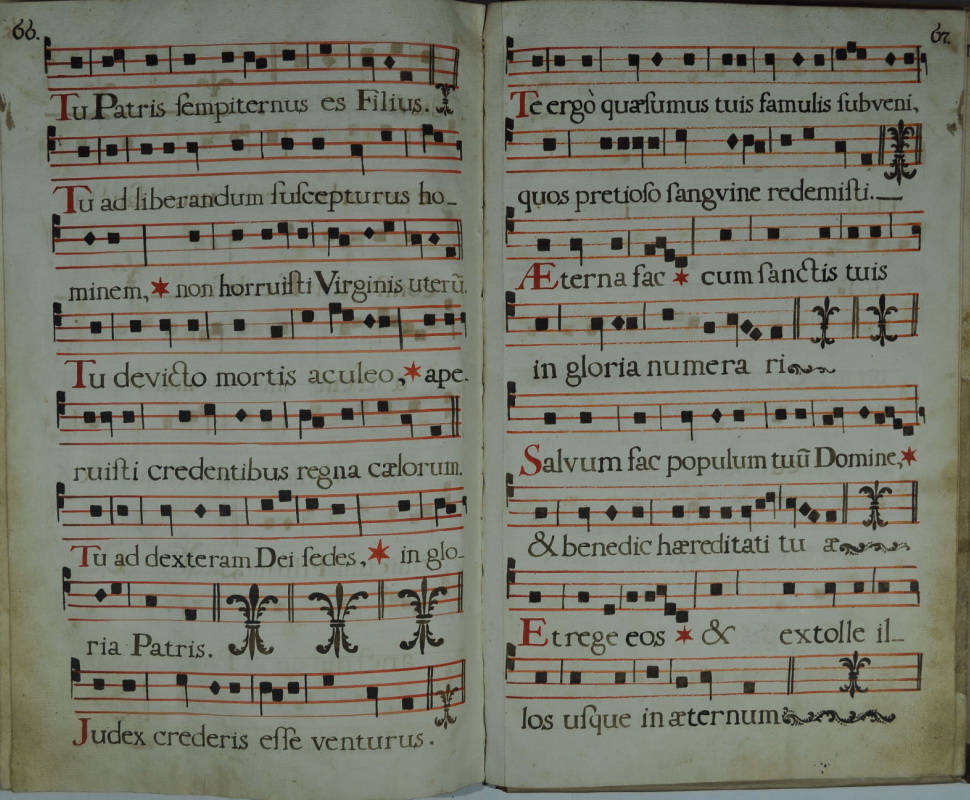 66.
Tu Patris ſempiternus es Filius.
Tu ad liberandum ſuſcepturus ho_
minem,* non horruiſti Virginis uterū.
Tu devicto mortis aculeo,* ape.
ruiſti credentibus regna cælorum.
Tu ad dexteram Dei ſedes,* in glo_
ria Patris.
Judex crederis eſſe venturus.
67.
Te ergò quæſumus tuis famulis ſubveni,
quos pretioſo ſangvine redemiſti.
Æterna fac * cum ſanctis tuis
in gloria numera ri
Salvum fac populum tuū Domine,*
& benedic hæreditati tu æ
Et rege eos * & extolle il_
los uſque in æternum